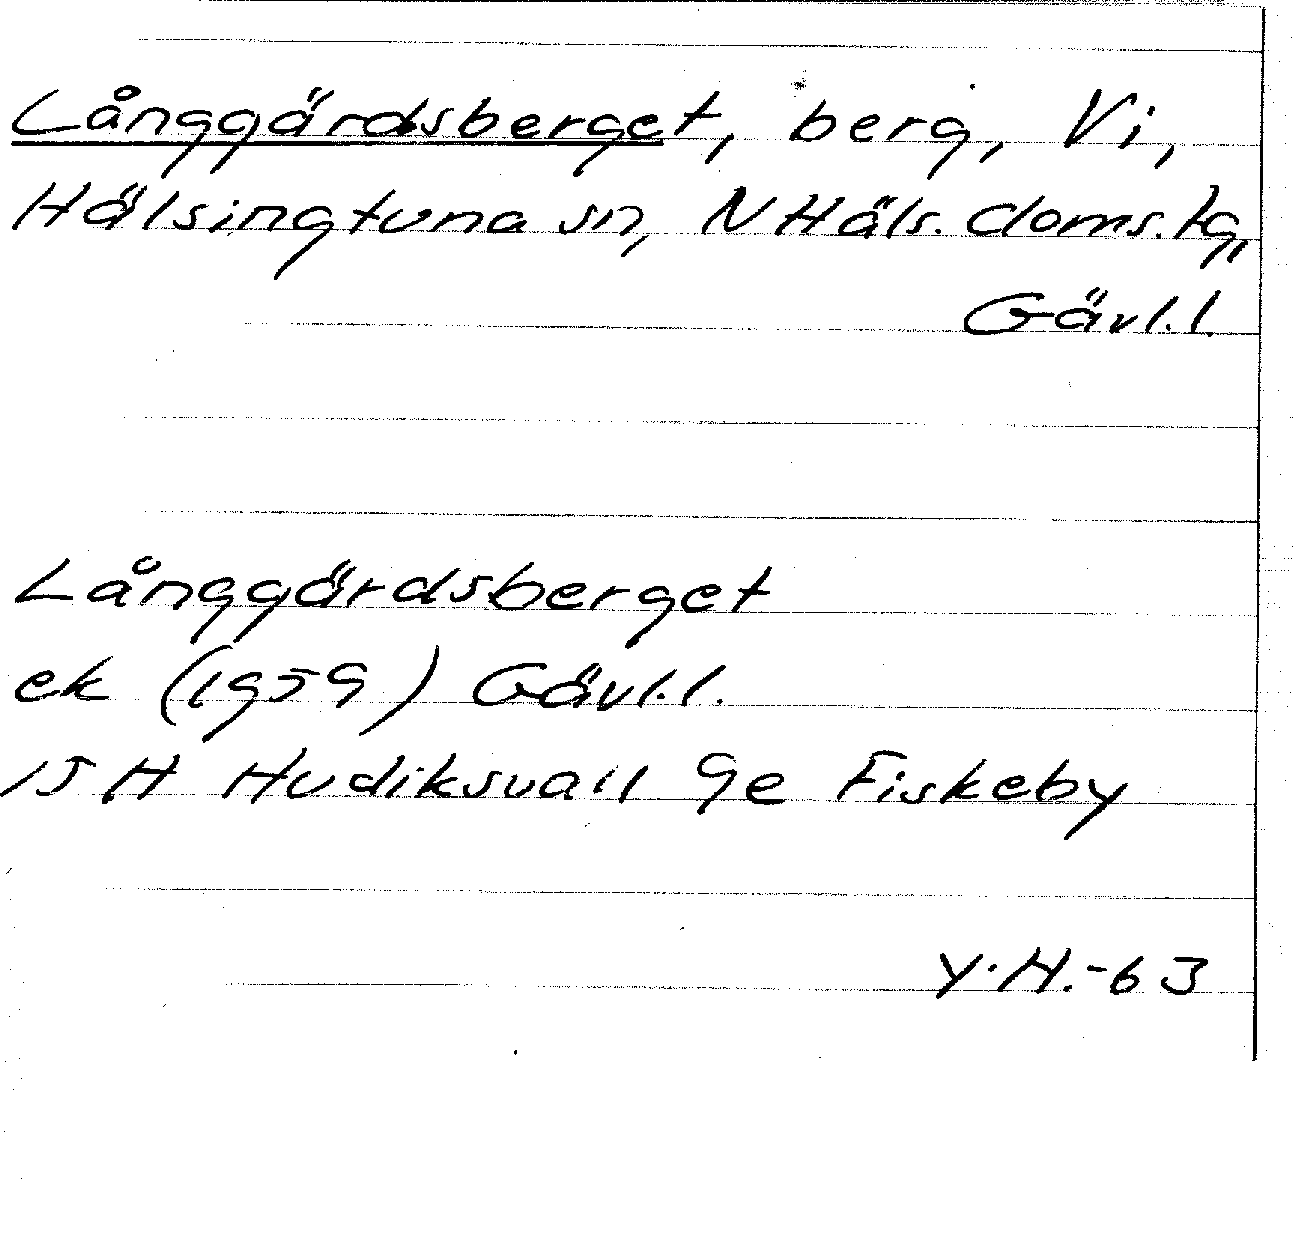 Långgärdsberget, berg, Vi,
Hälsingtuna sn, N Häls. doms. tg,
Gävl.l.
Långgärdsberget
ek (1959) Gävl.l.
15 H Hudiksvall 9e Fiskeby
Y.H.-63